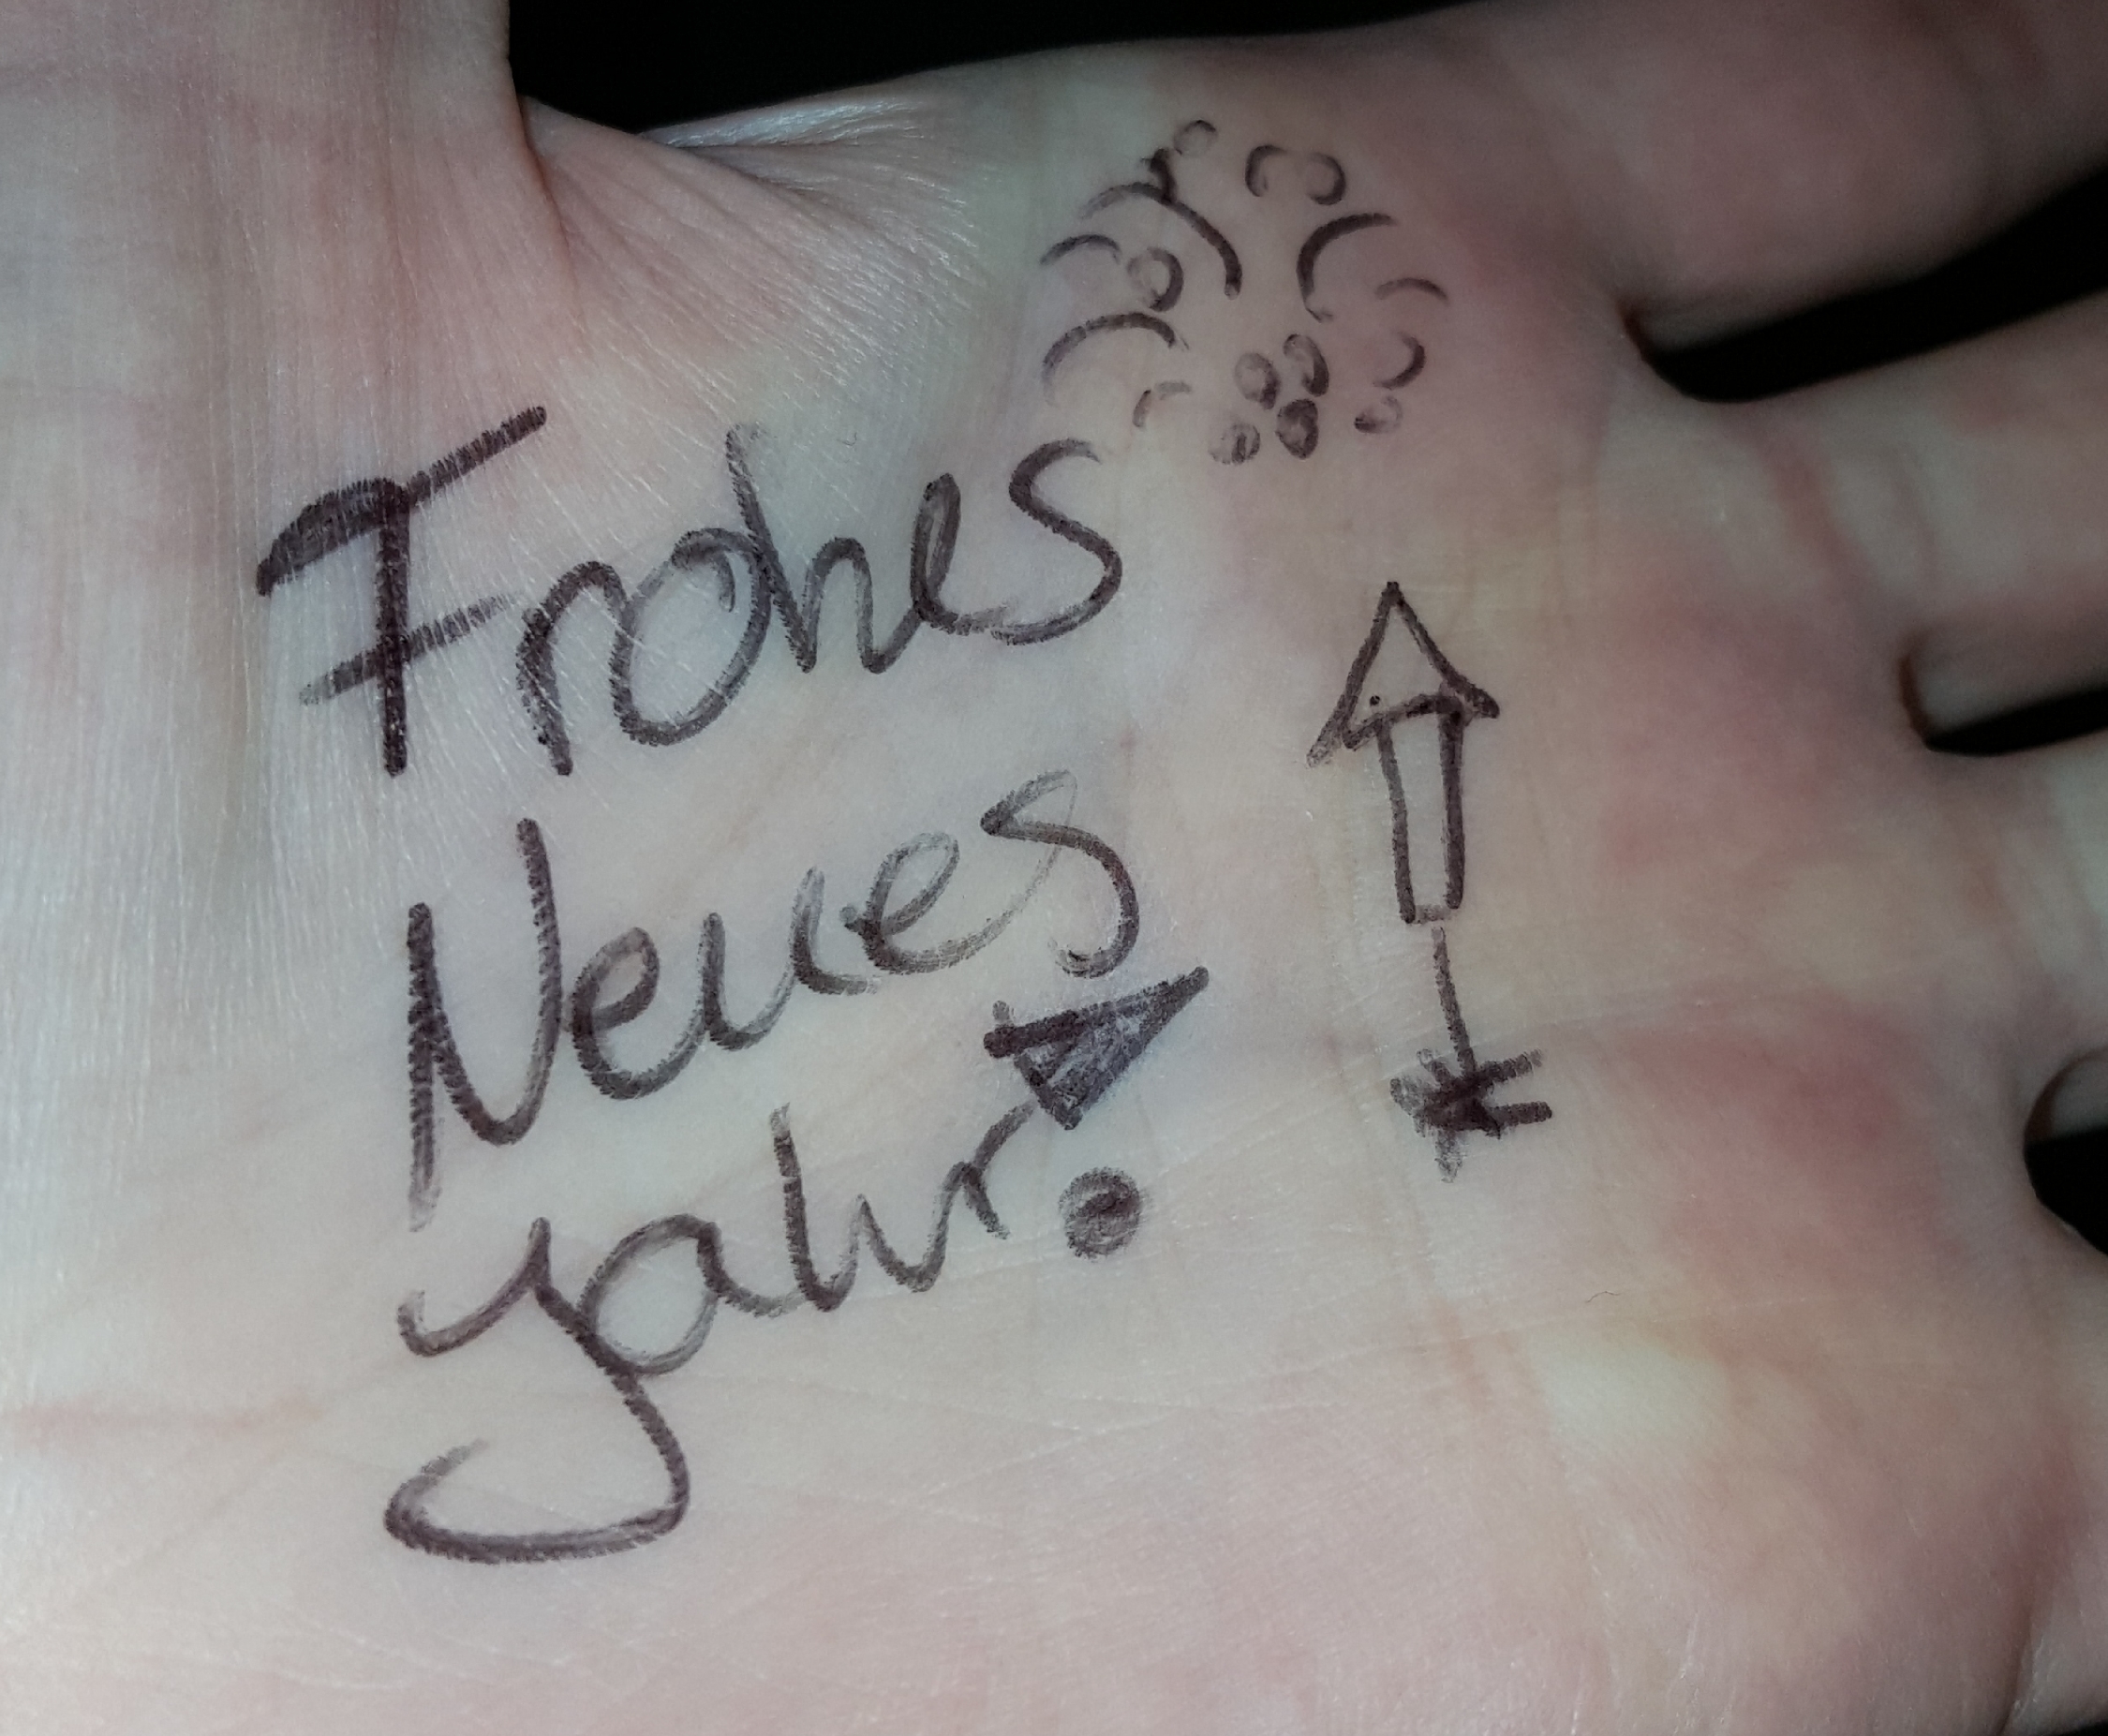 Frohes
Neues
Jahr!